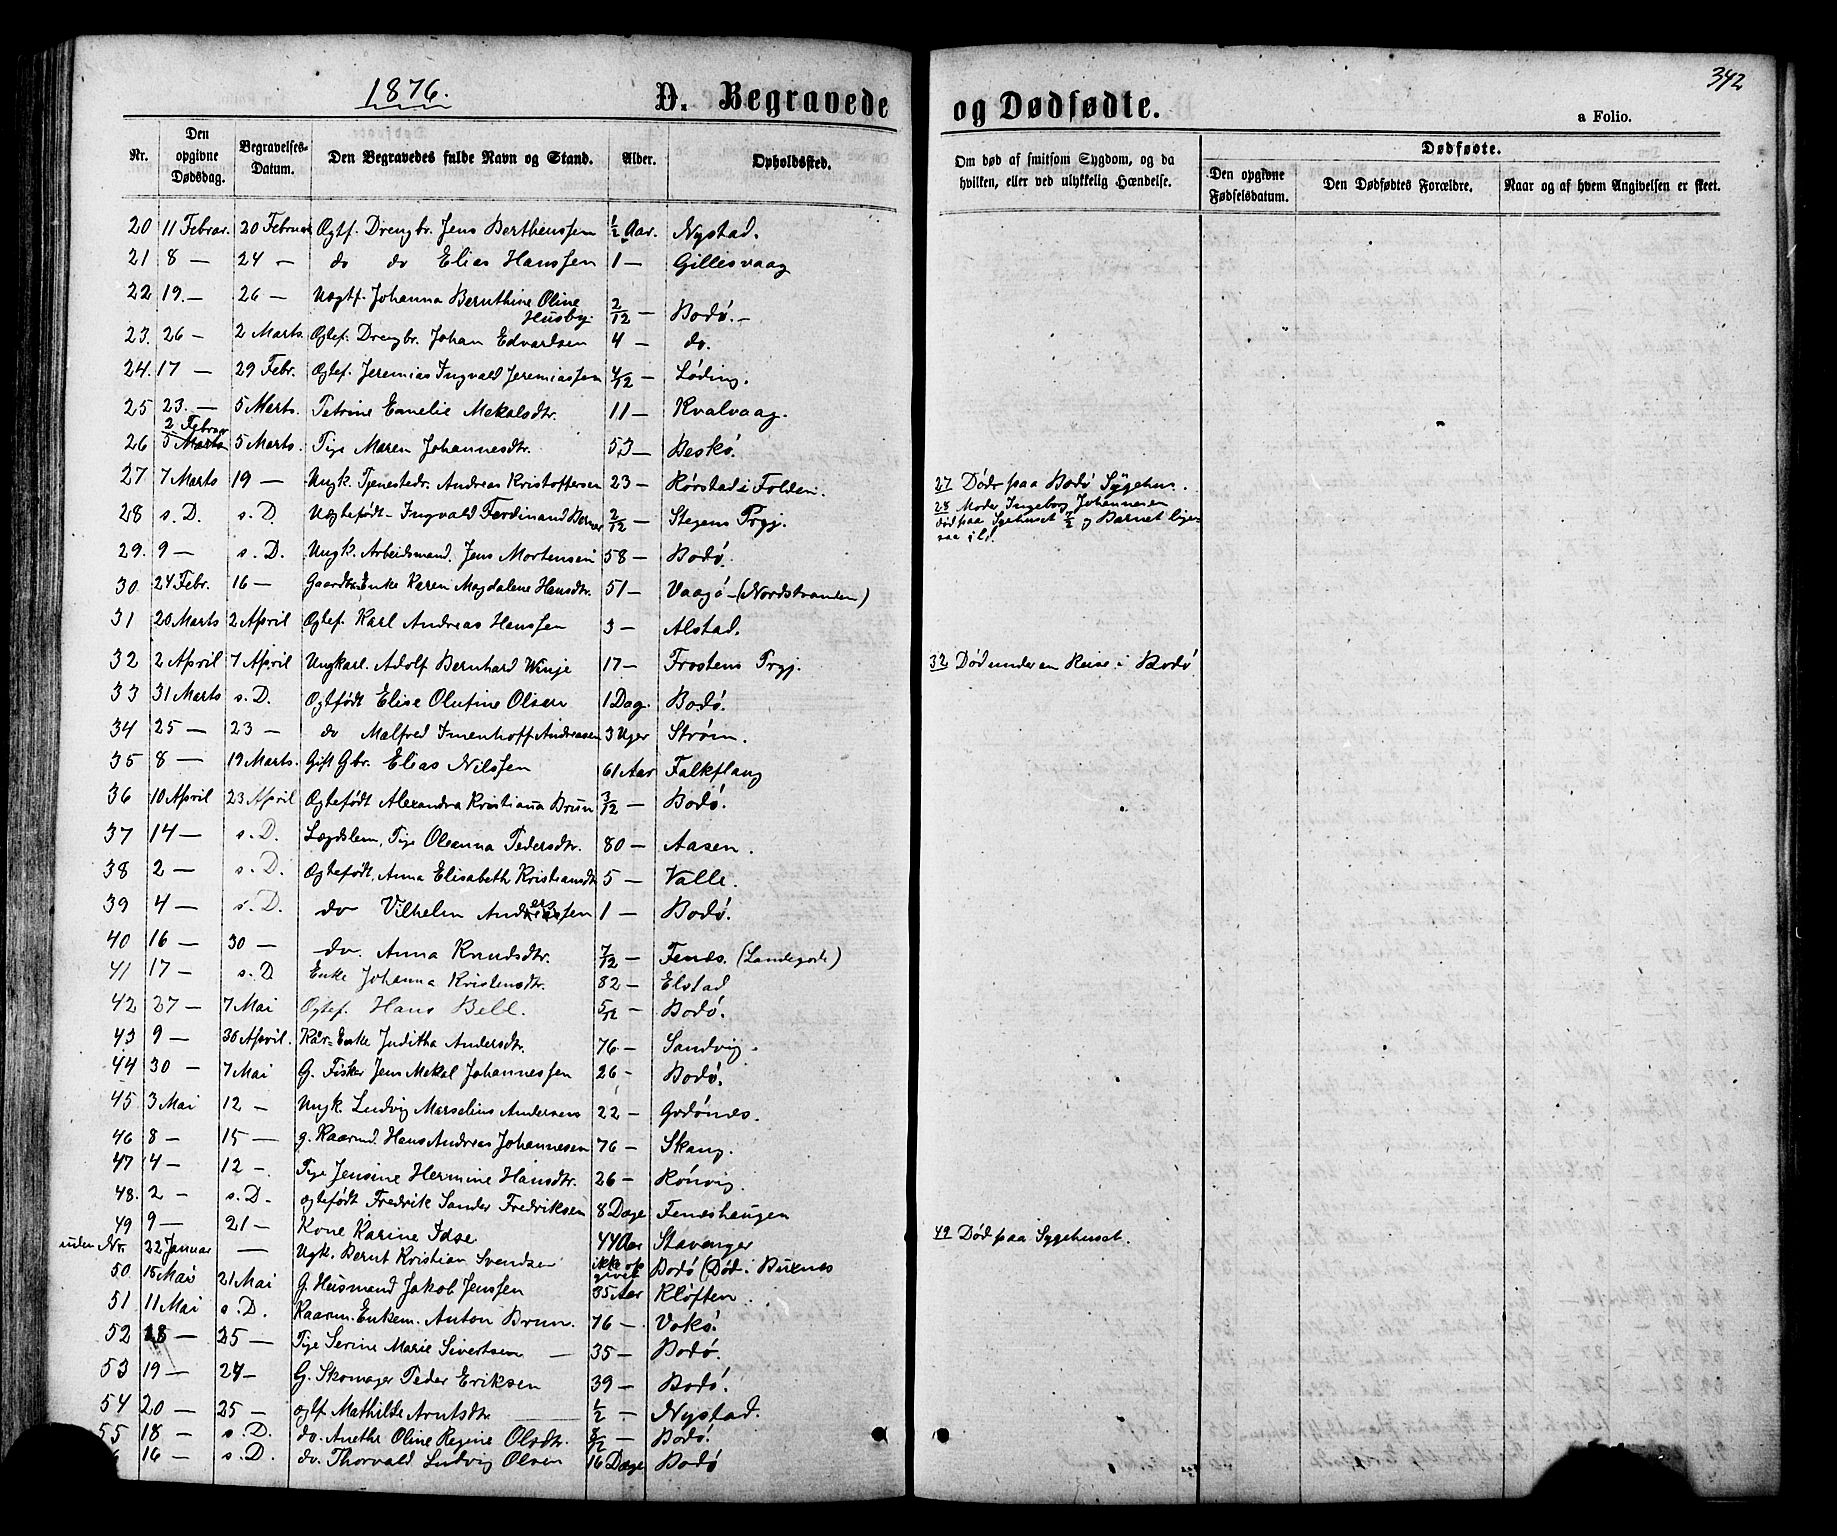 1876.
D. Begravede
og Dødfødte.
342
a Folio.
Nr.
Den opgivne Dødsdag.
Begravelses-Datum.
Den Begravedes fulde Navn og Stand.
Alder.
Opholdssted.
Om død af smitsom Sygdom, og da hvilken, eller ved ulykkelig Hændelse.
Dødfødte.
Den opgivne Fødselsdatum.
Den Dødfødtes Forældre.
Naar og af hvem Angivelsen er skeet.
20 11 Februar. 20 Februar Ægtf. Drengbr. Jens Berthenssen 1/2 Aar. Nystad.
21 8 — 24 — do do Elias Hanssen 1 — Gillesvaag
22 19. — 26 — Uægtf. Johanna Bernthine Oline Husby. 2/12 — Bodø. —
23. 26 — 2 Marts. Ægtef. Drengbr. Johan Edvardsen 4 — do.
24. 17 — 29 Febr. Ægtef. Jeremias Ingvald Jeremiassen 4/12 — Løding.
25 23. — 5 Marts. Petrine Emelie Mekalsdtr. 11 — Kvalvaag.
2 Februar
26 5 Marts 5 Marts. Pige Maren Johannesdtr. 53 — Beskø.
27 7 Marts 19 — Ungk. Tjenestedr. Andreas Kristoffersen 23 — Rørstad i Folden. 27 Død paa Bodø Sygehus.
28 s. D. s. D. Uægtefødt Ingvald Ferdinand Berner 2/12 — Stegens Prgj. 28 Moder Ingeborg Johannesen død paa Sygehuset 7/2 og Barnet ligesaa
29. 9 — s. D. Ungk. Arbeidsmand. Jens Mortensen 58 — Bodø.
30 24 Febr. 16 — Gaardm. Enke Karen Magdalene Hansdtr. 51 — Vaagø (Nordstranden)
31 20 Marts 2 April Ægtef. Karl Andreas Hanssen 3 — Alstad.
32 2 April 7 April Ungkarl. Adolf Bernhard Winje 17 — Frostens Prgj. 32 Død under en Reise i Bodø
33 31 Marts s. D. Ægtfødt Elise Olufine Olsen 1 Dag. Bodø.
34 25 — 23 — do Malfred Imenhoff Andreasen 3 Uger Strøm.
35 8 — 19 Marts. Gift Gbr. Elias Nilssen 61 Aar Falkflaug
36 10 April 23 April Ægtefødt Alexandra Kristiana Brun 3/12 — Bodø.
37 14 — s. D. Lægdslem, Pige Oleanna Pedersdtr. 80 — Aasen.
38 2 — s. D. Ægtefødt, Anna Elisabeth Kristiansdtr 5 — Valle.
39 4 — s. D. do Vilhelm Andreassen 1 — Bodø.
40 16 — 30 — do. Anna Knudsdtr. 7/12 — Fenes. (Landegode)
41 17 — s. D Enke Johanna Kristensdtr. 82 — Elstad
42 27 — 7 Mai Ægtef. Hans Bell. 5/12 — Bodø.
43 9 — 30 April. Kaar-Enke Juditha Andersdtr. 76 — Sandvig.
44 30 — 7 Mai G. Fisker Jens Mekal Johannessen 26 — Bodø.
45 3 Mai 12 — Ungk. Ludvig Marselius Andersens 22 — Godønes.
46 8 — 15 — g. Kaarmd. Hans Andreas Johannesen 76 — Skaug.
47 4 — 12 — Pige Jensine Hermine Hansdtr. 26 — Rønvig.
48. 2 — s. D. ægtefødt Fredrik Sander Fredriksen 8 Dage Feneshaugen
49 9 — 21 — Kone Karine Idse 44 Aar Stavanger 49 Død paa Sygehuset.
uden Nr. 22 Januar — Ugk. Bernt Kristian Svendsen ikke opgivet Bodø (Død i Buxnes
50. 15 Mai 21 Mai G. Husmand Jakob Jenssen 35 Aar Kløften.
51 11 Mai s. D. Kaarm. Enkem. Anton Brun. 76 — Vokø.
52 18 — 25 — Pige Serine Marie Sivertsen 35 — Bodø.
53 19 — 24 — G. Skomager Peder Eriksen 39 — Bodø.
54 20 — 25 — ægtf Mathilde Arntsdtr. 1/2 — Nystad.
55 18 — s. D. do. Anethe Oline Regine Olsdtr. 8/12 — Bodø.
16 — s. D. do. Thorvald Ludvig Olsen 16 Dage Bodø